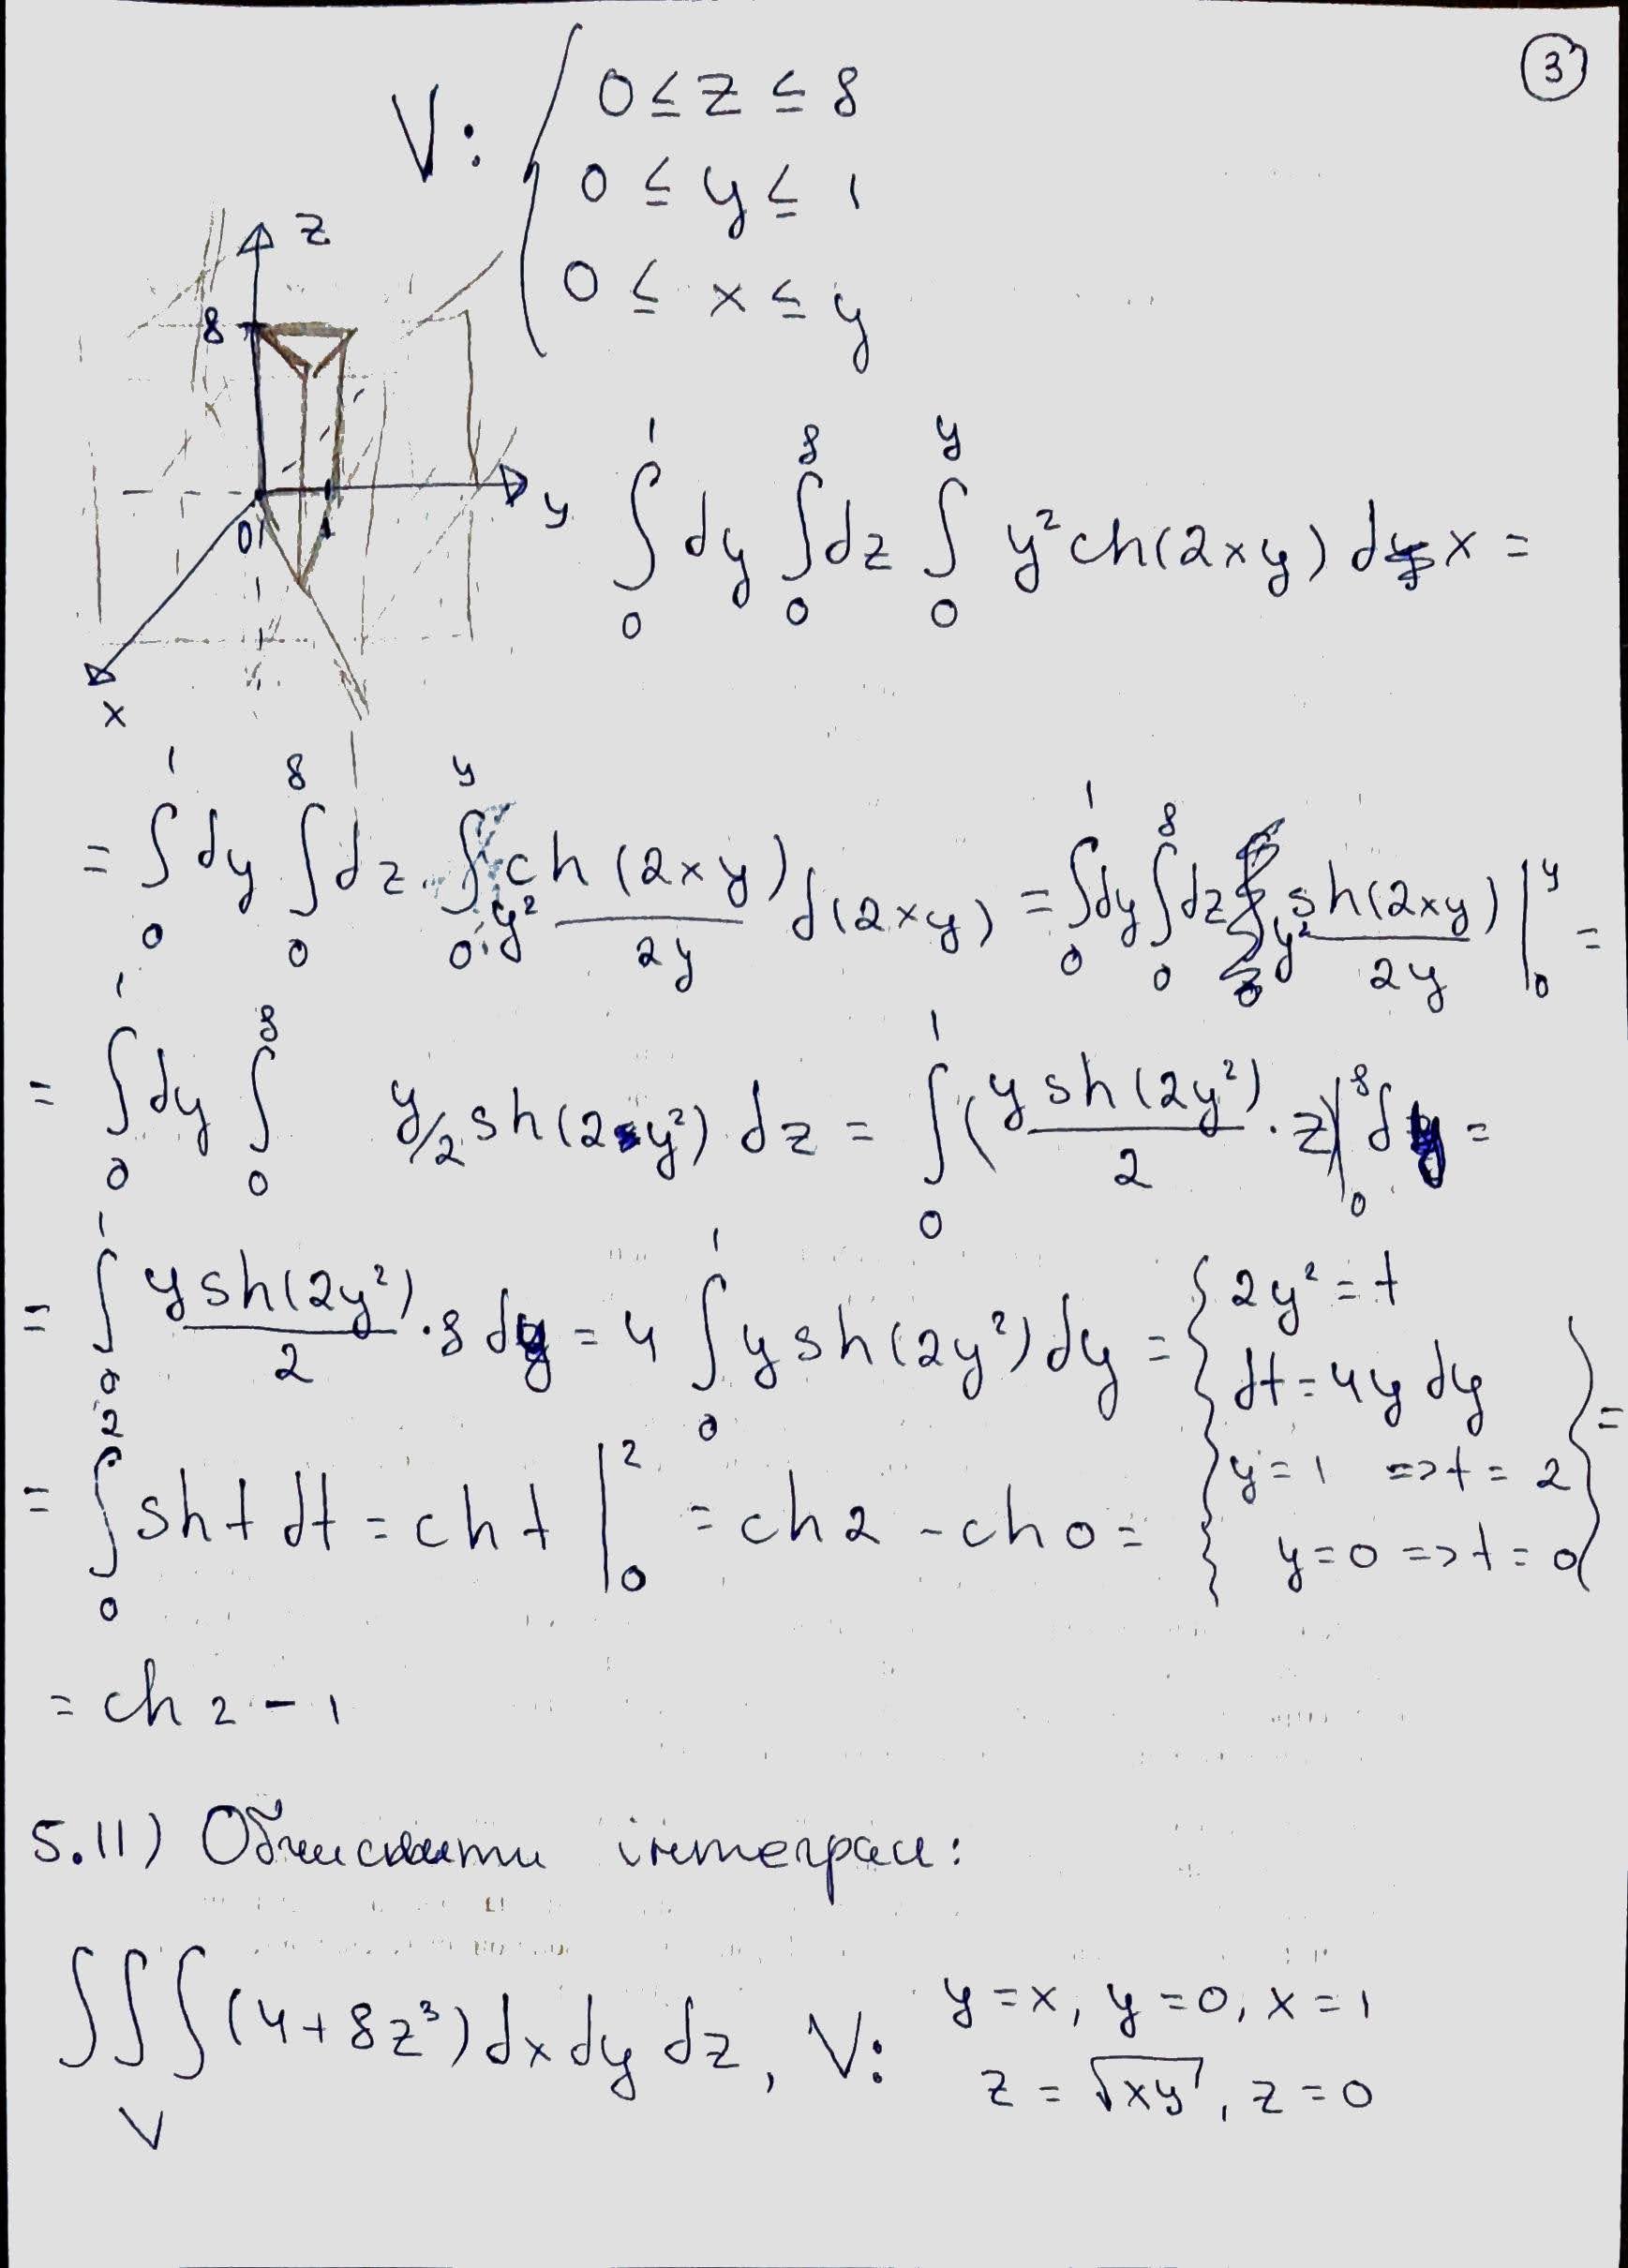 3
V: { 0 ≤ z ≤ 8
0 ≤ y ≤ 1
0 ≤ x ≤ y
z
8
0
1
y
x
∫₀¹ dy ∫₀⁸ dz ∫₀ʸ y² ch(2xy) dx =
= ∫₀¹ dy ∫₀⁸ dz ∫₀ʸ y² ch(2xy)/2y d(2xy) = ∫₀¹ dy ∫₀⁸ dz y² sh(2xy)/2y |₀ʸ =
= ∫₀¹ dy ∫₀⁸ y/2 sh(2y²) dz = ∫₀¹ (y sh(2y²)/2 · z)|₀⁸ dy =
= ∫₀¹ y sh(2y²)/2 · 8 dy = 4 ∫₀¹ y sh(2y²) dy = { 2y² = t
dt = 4y dy
y = 1 => t = 2
y = 0 => t = 0 } =
= ∫₀² sh t dt = ch t |₀² = ch 2 - ch 0 =
= ch 2 - 1
5.11) Обчислити інтеграл:
∫∫∫ (4 + 8z³) dx dy dz, V: y = x, y = 0, x = 1
V
z = √xy, z = 0